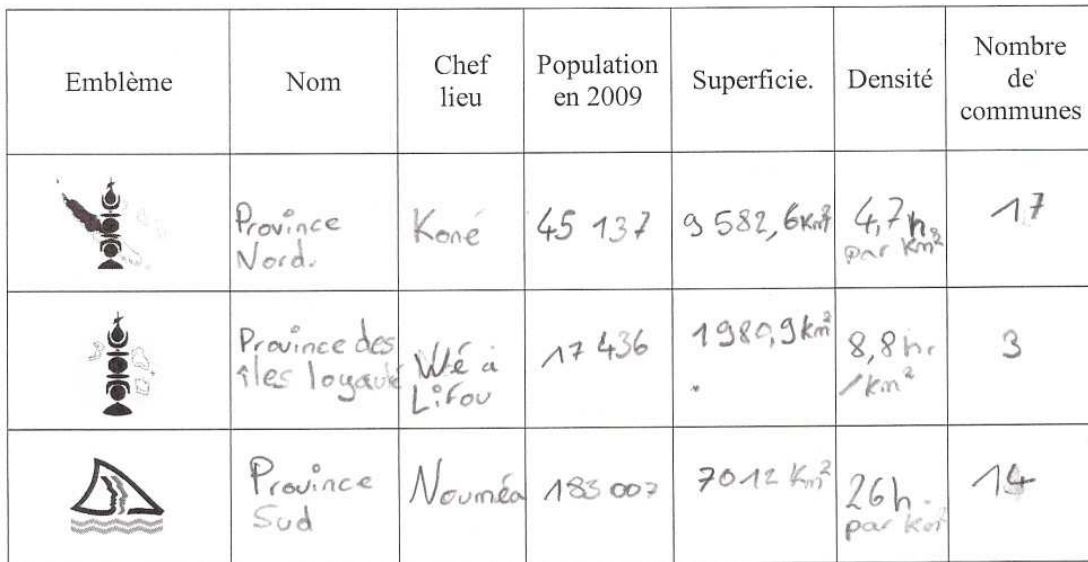 Emblème Nom Chef lieu Population en 2009 Superficie. Densité Nombre de communes
Province Nord. Koné 45 137 9 582,6 km² 4,7 h. par km² 17
Province des îles loyauté Wé à Lifou 17 436 1980,9 km² 8,8 hr /km² 3
Province Sud Nouméa 183 007 7012 km² 26 h. par km² 14